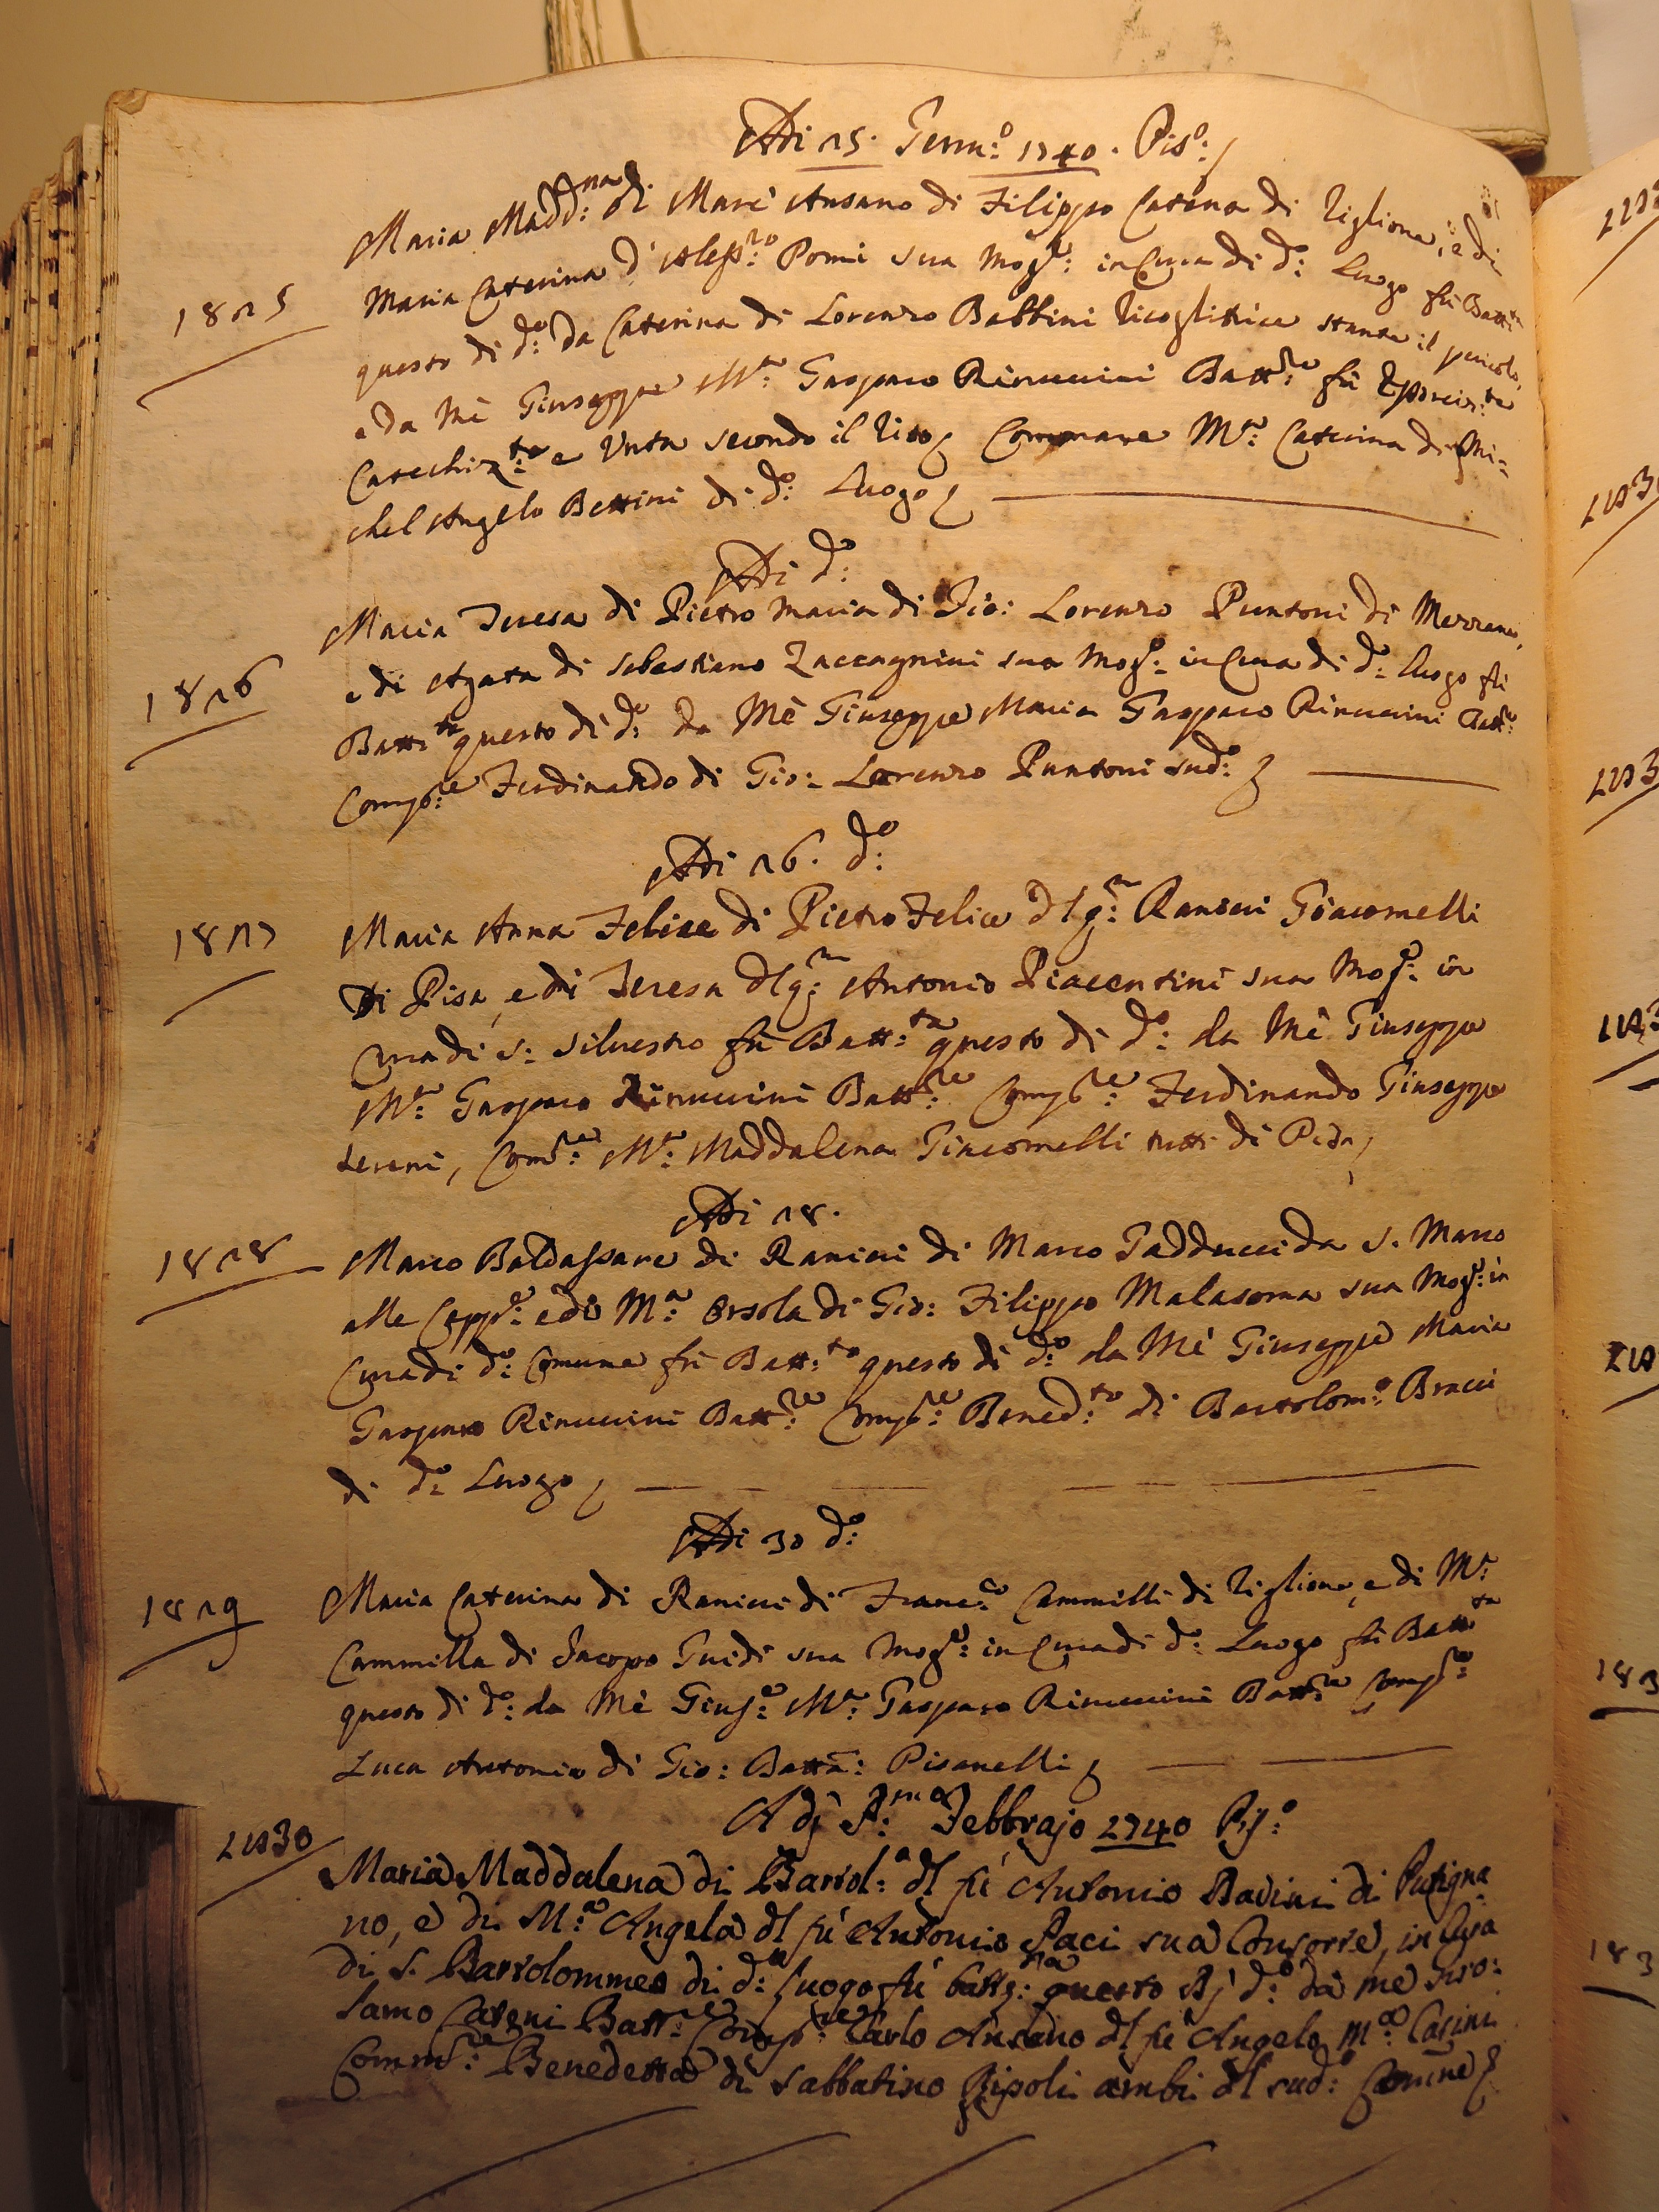 Adi 15. Genn:o 1740. Pis:o
1815
Maria Madd:na di Mari' Ansano di Filippo Catena di Riglione, e di
Maria Caterina d'Aless:ro Pomi sua Mog:e in Cura di d:o Luogo fù Batt:ta
questo dì d:o da Caterina di Lorenzo Babbini Ricoglitrice stante il pericolo,
e da Mè Giuseppe M:a Gasparo Rinuccini Batt:re fù Esorciz:ta
Catechiz:ta e Unta secondo il Rito Commare M:a Caterina di Mi=
chel Angelo Bettini di d:o Luogo
Adi d:o
1816
Maria Teresa di Pietro Maria di Gio: Lorenzo Puntoni di Mezzana,
e di Agata di Sebastiano Zaccagnini sua Mog:e in Cura di d:o Luogo fù
Batt:ta questo dì d:o da Mè Giuseppe Maria Gasparo Rinuccini Batt:re
Comp:e Ferdinando di Gio: Lorenzo Puntoni sud:o
Adi 16. d:o
1817
Maria Anna Felice di Pietro Felice dl q:m Ranieri Giacomelli
di Pisa, e di Teresa dl q:m Antonio Piacentini sua Mog:e in
Cura di S: Silvestro fù Batt:ta questo dì d:o da Mè Giuseppe
M:a Gasparo Rinuccini Batt:re Comp:re Ferdinando Giuseppe
Sereni, Com:re M:a Maddalena Giacomelli tutti di Pisa,
Adi 18.
1818
Marco Baldassare di Ranieri di Marco Tadducci da S. Marco
alle Capp:e e di M:a Orsola di Gio: Filippo Malasoma sua Mog:e in
Cura di d:o Comune fù Batt:to questo dì d:o da Mè Giuseppe Maria
Gasparo Rinuccini Batt:re Comp:re Bened:to di Bartolom:o Bracci
di d:o Luogo
Adi 30 d:o
1819
Maria Caterina di Ranieri di Franc:co Cammilli di Riglione, e di M:a
Cammilla di Jacopo Guidi sua Mog:e in Cura di d:o Luogo fù Batt:ta
questo dì d:o da Mè Gius:e M:a Gasparo Rinuccini Batt:re Comp:re
Luca Antonio di Gio: Batta: Pisanelli
A dj P:mo Febbrajo 1740 Pis:o
1830
Maria Maddalena di Bartol:o dl fù Antonio Badini di Putigna
no, e di M:a Angela dl fù Antonio Paci sua Consorte, in Cura
di S. Bartolommeo di d:o luogo fù battz:ta questo dj d:o da me Giro:
lamo Cateni Batt:re Comp:re Carlo Ansano dl fù Angelo M:a Casini
Comm:re Benedetta di Sabbatino Ripoli ambi dl sud:o Comune
183
183